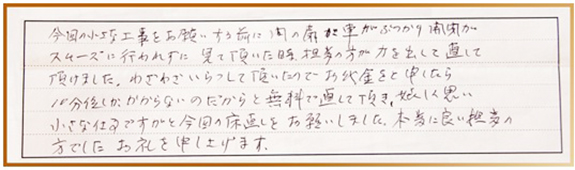 今回の小さな工事をお願いする前に門の扉に車がぶつかり開閉が
スムーズに行われずに見て頂いた時、担当の方が力を出して直して
頂けました。わざわざいらっして頂いたのでお代金をと申したら
10分位しかかからないのだからと無料で直して頂き、嬉しく思い
小さな仕事ですがと今回の床直しをお願いしました。本当に良い担当の
方でした お礼を申し上げます。